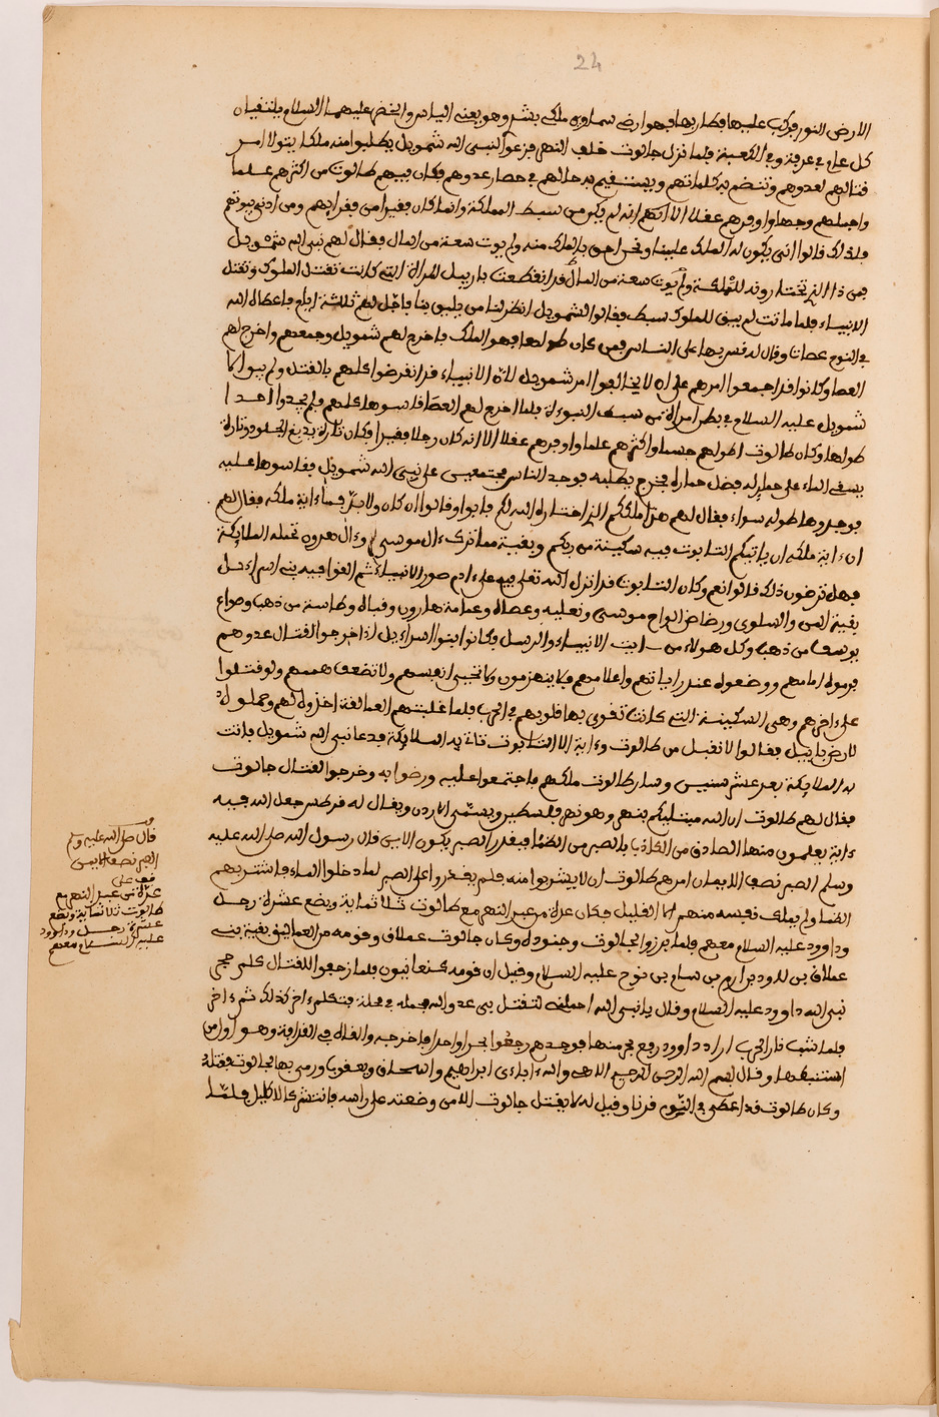 24
الارض النور فركب عليها فطار بها فهو ارضي سماوي ملكي بشر وهو يعني الياس والخضر عليهما السلام يلتقيان
كل عام في عرفة وفي الكعبة فلما نزل جالوت خلف النهر فزعوا لنبي الله شمويل يطلبوا منه ملكا يتولا امر
قتالهم لعدوهم وتنضم به كلماتهم ويستقيم به حالهم في حصار عدوهم فكان فيهم طالوت من اكثرهم علما
واجملهم وجها واوفرهم عقلا الا انه لم يكن من سبط المملكة وانما كان فقيرا من فقرايهم ومن ادنى بيوتهم
فلذلك قالوا انى يكون له الملك علينا ونحن احق بالملك منه ولم يوت سعة من المال فقال لهم نبي الله شمويل
فمن ذا الذي تختاروند للمملكة ولم يوت سعة من المال قد انقطعت باربيل المراة التي كانت تقتل الملوك وتقتل
الانبياء فلما ماتت لم يبق للملوك سبط فقالوا لشمويل انظر لنا من يليق بنا فاجل لهم ثلاثة ايام فاعطاه الله
في النوم عصاتا وقال له قس بها على الناس فمن كان طولها فهو الملك فاخرج لهم شمويل وجمعهم واخرج لهم
العصا وكانوا قد اجمعوا امرهم على ان لا يخالفوا امر شمويل لان الانبياء قد انقرضوا كلهم بالقتل ولم يبق الا
شمويل عليه السلام في بطن امراة من سبط النبوءة فلما اخرج لهم العصا قاسوها كلهم فلم يجدوا احدا
طولها وكان طالوت اطولهم جسما واكثرهم علما واوفرهم عقلا الا انه كان رجلا فقيرا وكان تارة يدبغ الجلود وتارة
يسقي الماء على حمار له فضل حماره فخرج يطلبه فوجد الناس مجتمعين على نبي الله شمويل فقاسوها عليه
فوجدوها طوله سواء فقال لهم هذا ملككم الذي اختاره الله لكم فابوا وقالوا ان كان ولا بد فما ءاية ملكه فقال لهم
ان ءاية ملكه ان ياتيكم التابوت فيه سكينة من ربكم وبقية مما ترك ءال موسى وءال هارون تحمله الملايكة
فهل ترضون ذلك قالوا نعم وكان التابوت قد انزل الله تعلى فيه على ءادم صور الانبياء ثم القوا فيه بني اسراءيل
بقية المن والسلوى ورضاض الواح موسى ونعليه وعصاه وعمامة هارون وقباه وطاسة من ذهب وصواع
يوسف من ذهب وكل هولاء من ايت الانبياء والرسل فكانوا بنوا اسراءيل اذا خرجوا لقتال عدوهم
قدموه امامهم ووضعوه عند راياتهم واعلامهم فلا ينهزمون ولا تجبن انفسهم ولا تضعف هممهم ولو قتلوا
على ءاخرهم وهي السكينة التي كانت تقوى بها قلوبهم في الحرب فلما غلبتهم العمالقة اخذوه لهم وحملوه
لارض بابيل فقالوا لا نقبل من طالوت وءاية الا التابوت تات به الملايكة فدعا نبي الله شمويل فاتت
به الملايكة بعد عشر سنين وصار طالوت ملكهم فاجتمعوا عليه ورضوا به وخرجوا لقتال جالوت
فقال لهم طالوت ان الله مبتليكم بنهر وهو نهر فلسطين ويسمى الاردن ويقال له قرطس جعل الله فيه
ءاية يعلمون منها الصادق من الكاذب بالصبر من الظما فبقدر الصبر يكون الامن قال رسول الله صلى الله عليه
وسلم الصبر نصف الايمان امرهم طالوت ان لا يشربوا منه فلم يقدروا على الصبر لما دخلوا الماء واشتد بهم
الظما ولم يملك نفسه منهم الا القليل فكان عدة من عبر النهر مع طالوت ثلاثماية وبضع عشرة رجل
وداوود عليه السلام معهم فلما برزوا لجالوت وجنوده وكان جالوت عملاق وقومه من العماليق بقية بني
عملاق بن لاود بن ارم بن سام بن نوح عليه السلام وقيل ان قومه كنعانيون فلما زحفوا للقتال كلم حجر
نبي الله داوود عليه السلام وقال يا نبي الله احملني لتقتل بي عدو الله فحمله في مخلاة فتكلم ءاخر كذلك ثم ءاخر
فلما شب نار الحرب اراد داوود رفع حجر منها فوجدهم رجعوا حجرا واحدا فاخرجه والقاه في القذافة وهو اول من
استنبطها وقال بسم الله الرحمن الرحيم الاهي والاه ءاباءي ابراهيم واسحاق ويعقوب ورمى بها جالوت فقتله
وكان طالوت قد اعطي في النوم قرنا وقيل له لا يقتل جالوت الا من وضعته على راسه فانتشر كالاكليل فلما
قال صلى الله عليه وسلم
الصبر نصف الايمن
عدة من عبر النهر مع
طالوت ثلاثماية وبضع
عشرة رجل وداوود
عليه السلام معهم